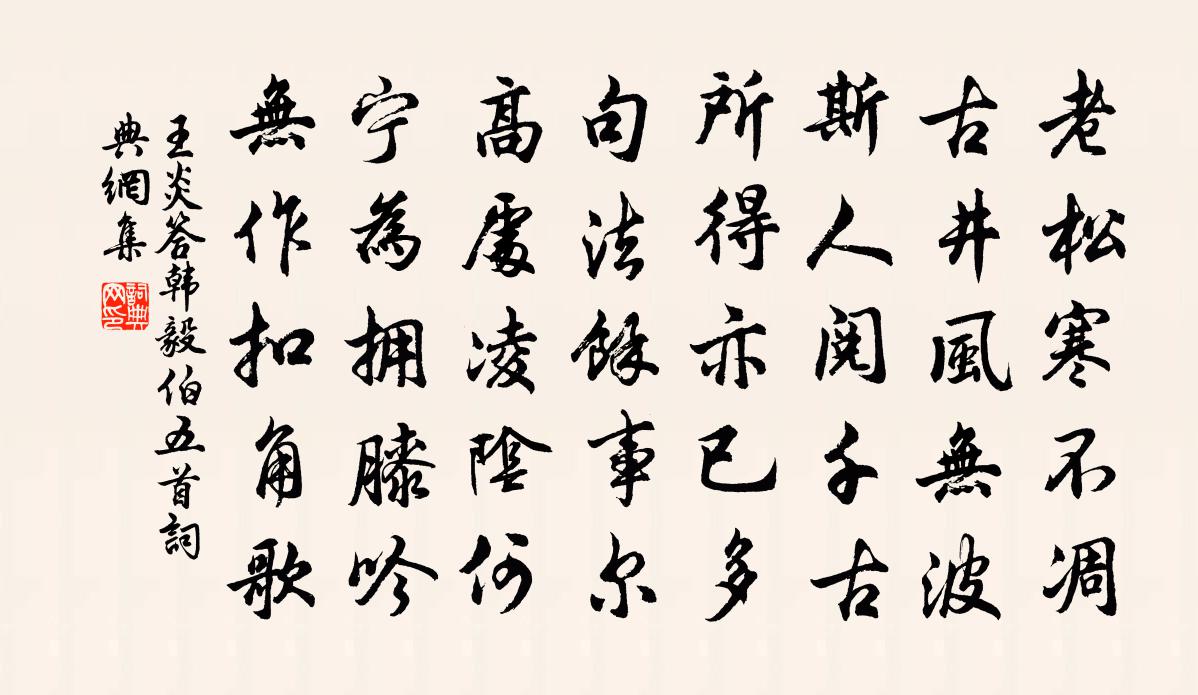 老松寒不凋
古井風無波
斯人閱千古
所得亦已多
句法餘事尔
高處凌陰何
宁為拥膝吟
無作扣角歌
王炎答韩毅伯五首詞
典網集
詞典
网印